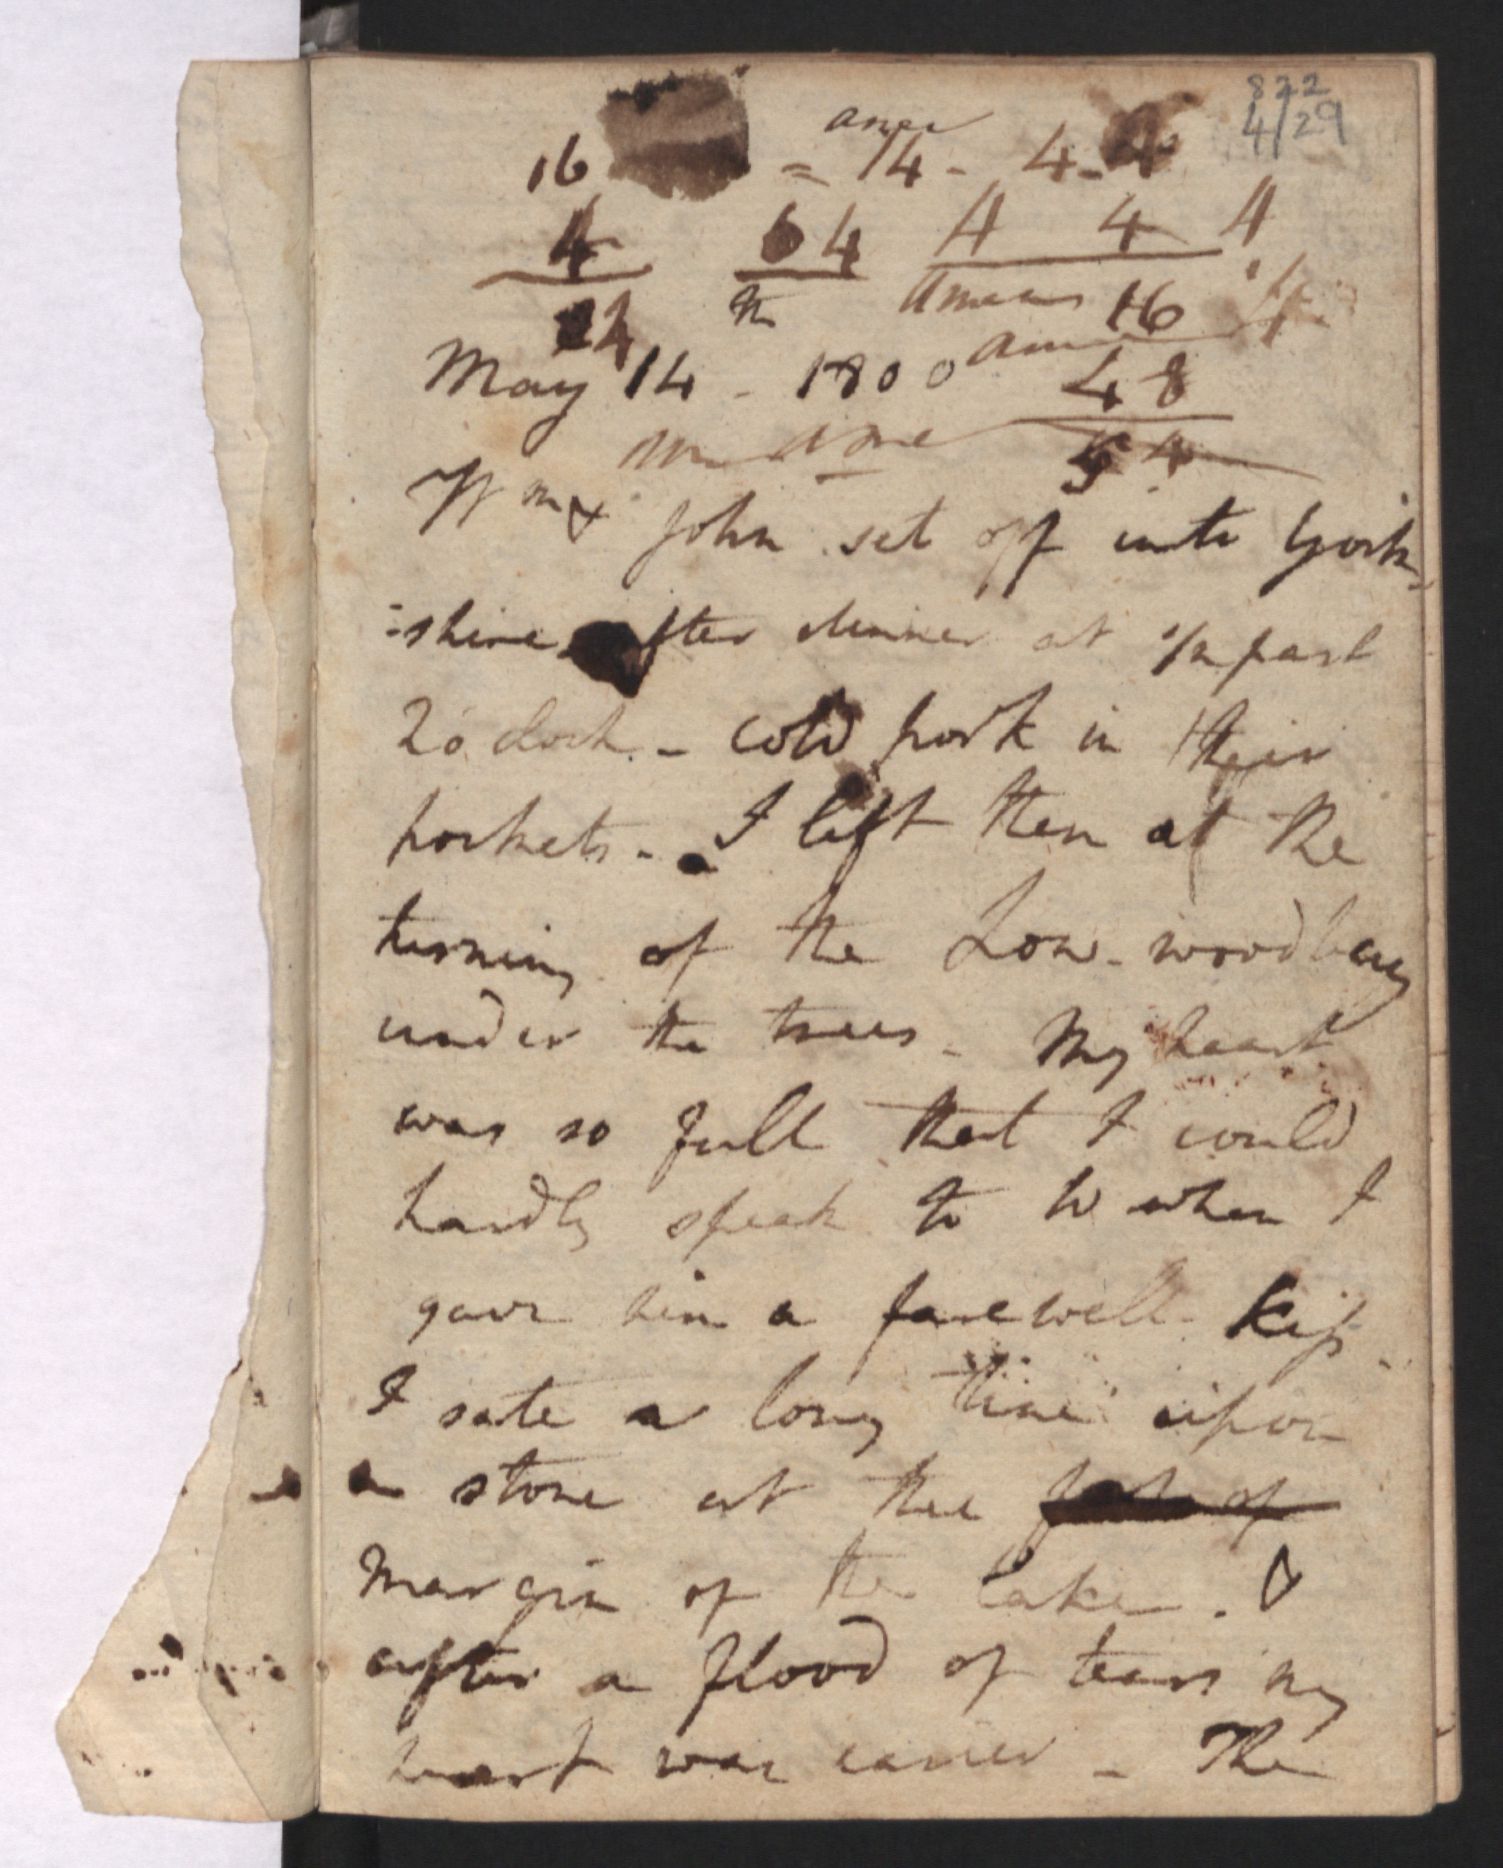 822
4/29
16 = 14 - 4 - 4
4 64 A 4 A
24 16
May 14 - 1800
48
54
Wm & John set off into York-
:shire after dinner at 1/2 past
2 o'clock - cold pork in their
pockets. - I left them at the
turning of the Low-wood bay
under the trees - My heart
was so full that I could
hardly speak to W when I
gave him a farewell kiss.
I sate a long time upon
a stone at the
margin of the lake, &
after a flood of tears my
heart was easier - The